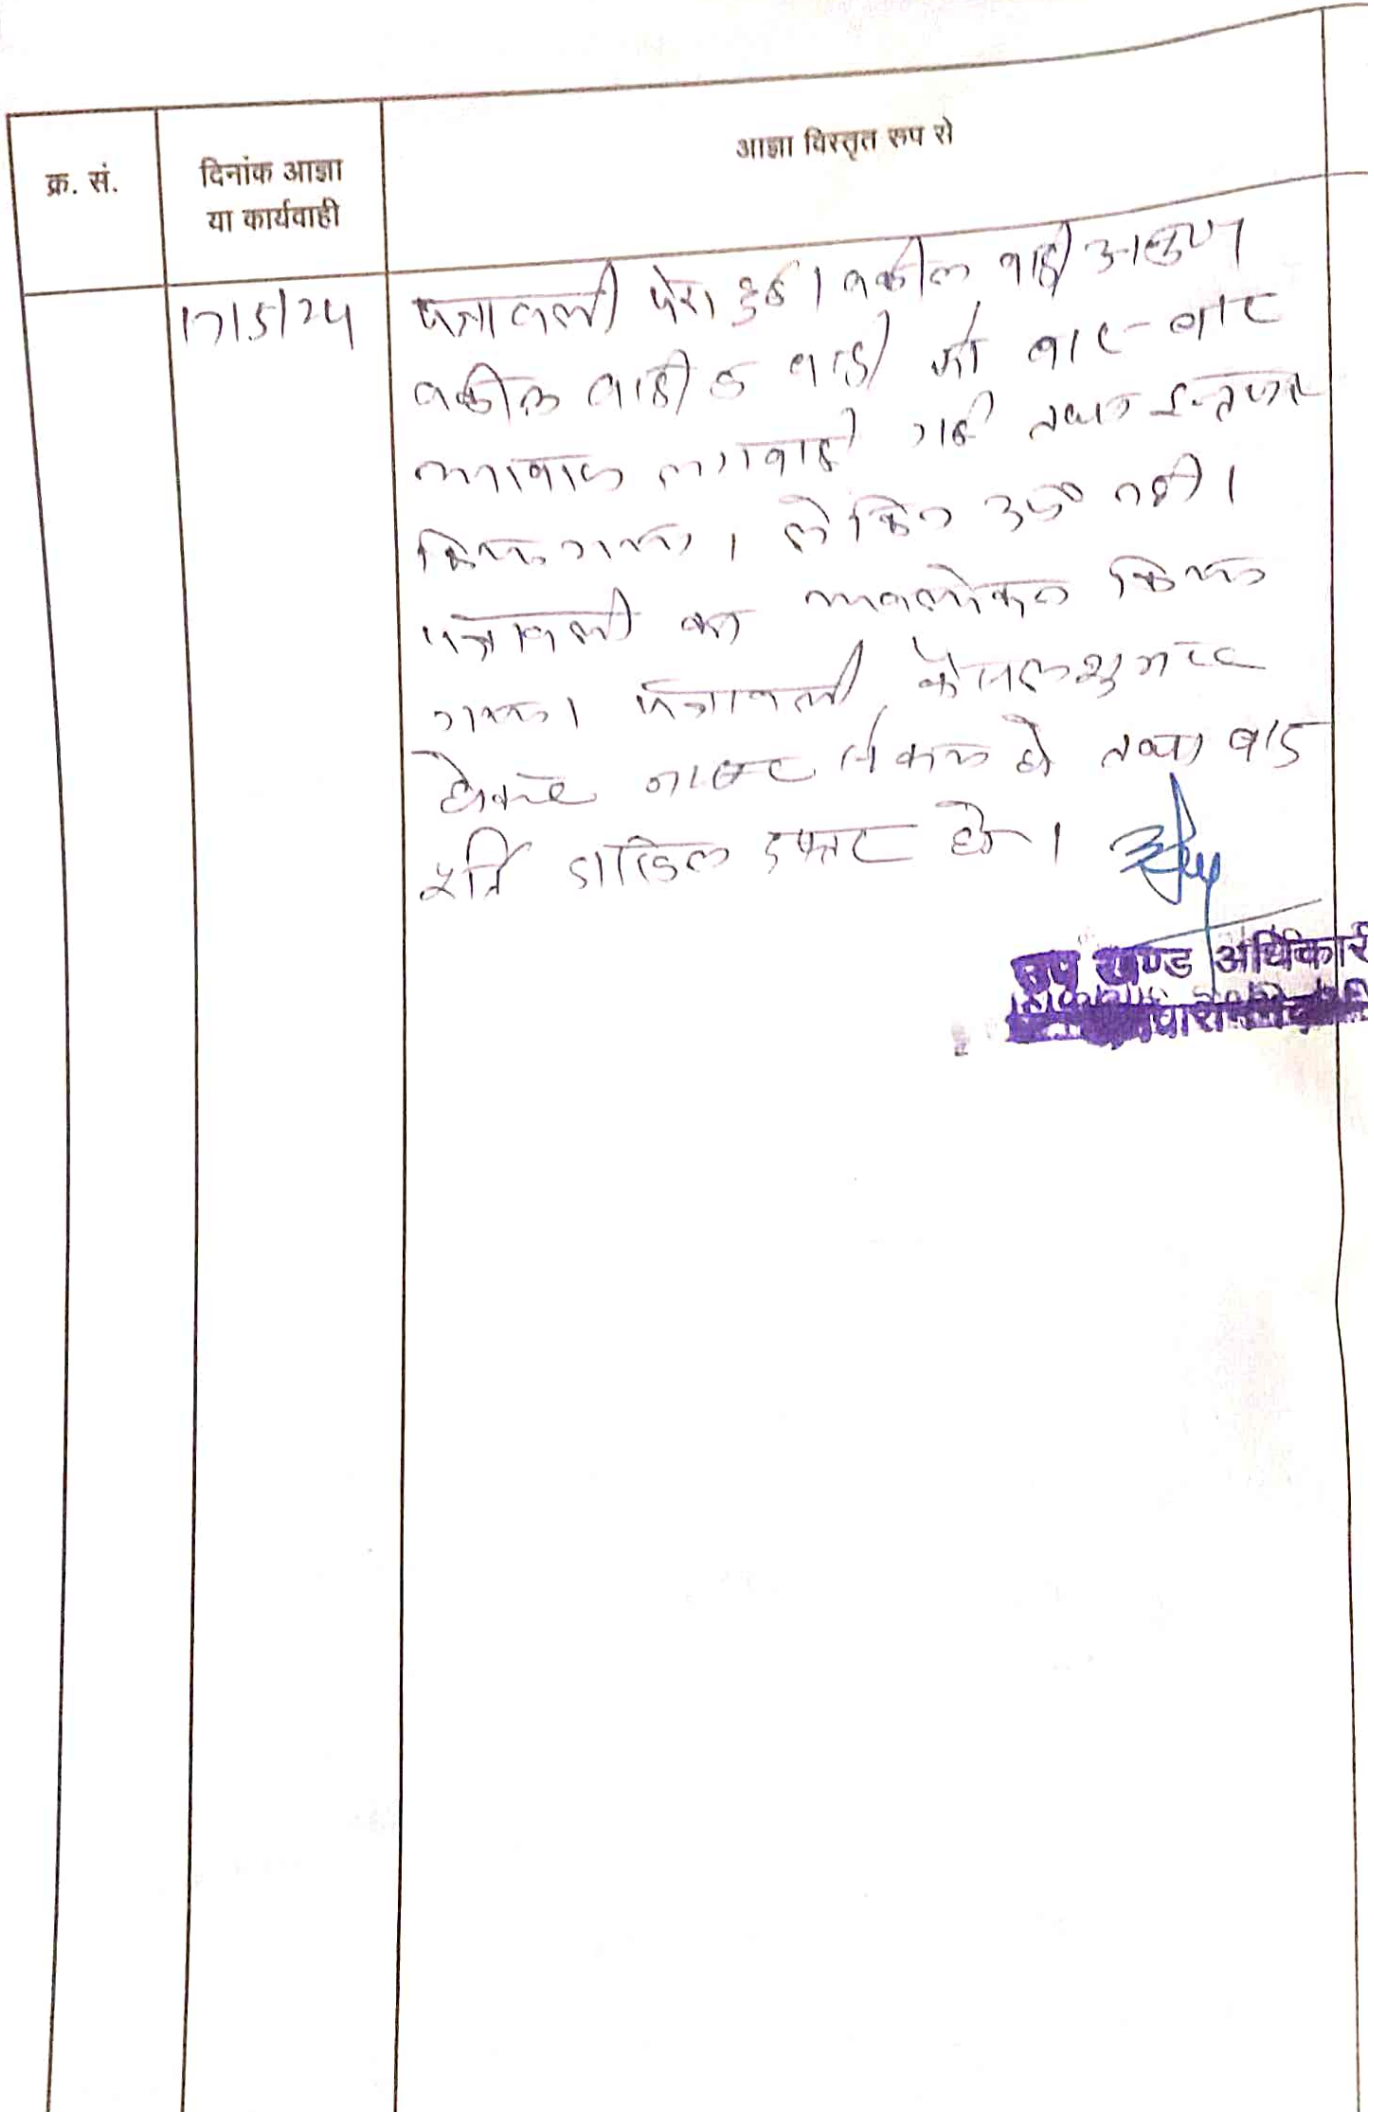 क्र. सं.
दिनांक आज्ञा
या कार्यवाही
आज्ञा विस्तृत रूप से
17/5/24
पत्रावली पेश हुई। वकील वादी
वकील वादी व वादी को बार-बार
आवाज लगवाई गई तथा इन्तजार
किया गया। लेकिन उप० नहीं।
पत्रावली का अवलोकन किया
गया। पत्रावली फैसलशुमार
होकर नम्बर से कम हो तथा बाद
पूर्ति दाखिल दफ्तर हो।
उप खण्ड अधिकारी